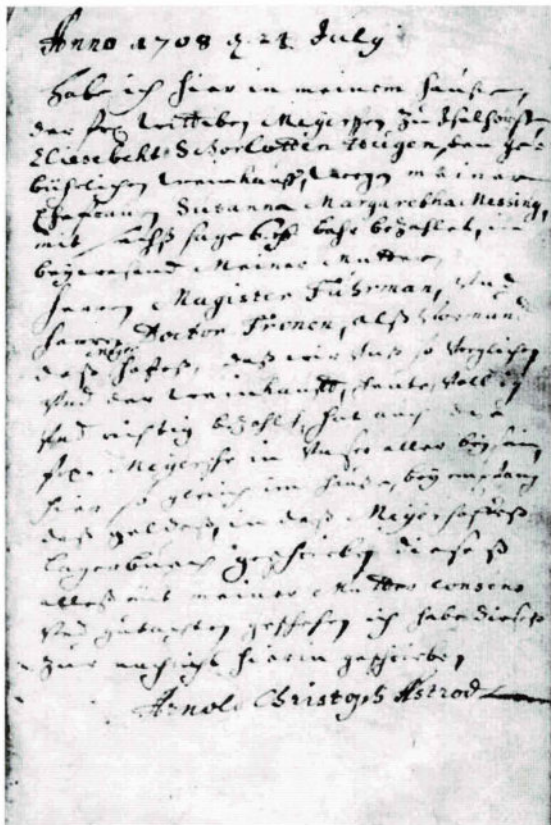 Anno 1708 d. 24 July
habe ich hier in meinem Hause,
der Witteben Meyerschen zu
Eliesebeht Schorlotten den ge-
bührlichen weinkauff, wegen meiner
Ehefrauen Susanna Margarehta Messing,
mit bahr bezahlet, in
beywesend Meiner Mutter,
Herrn Magister Fuhrman, Und
Herrn Doctor Tronen, alß Vormund
deß Hofes, daß wir Unß so Verglichen
Und der weinkauff, heute, Vollig
Und richtig bezahlt, hat auch die
Meyersche in Unser aller beysein,
hier so gleich im Hause, bey empfang
deß geldeß, in daß Meyerhofeß
lagerbuch geschrieben dieseß
alleß mit meiner Mutter consens
Und gutachten geschehen ich habe dieses
zur nachricht hierin geschrieben
Arnold Christoph Astrod